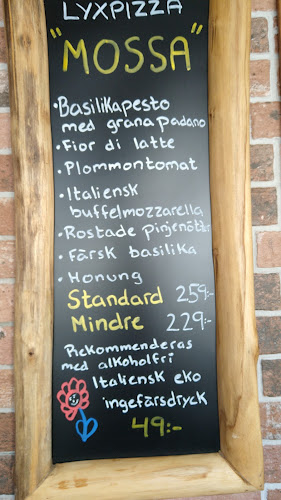 LYXPIZZA
"MOSSA"
• Basilikapesto
med grana padano
• Fior di latte
• Plommontomat
• Italiensk
buffelmozzarella
• Rostade pinjenötter
• Färsk basilika
• Honung
Standard 259:-
Mindre 229:-
Rekommenderas
med alkoholfri
Italiensk eko
ingefärsdryck
49:-